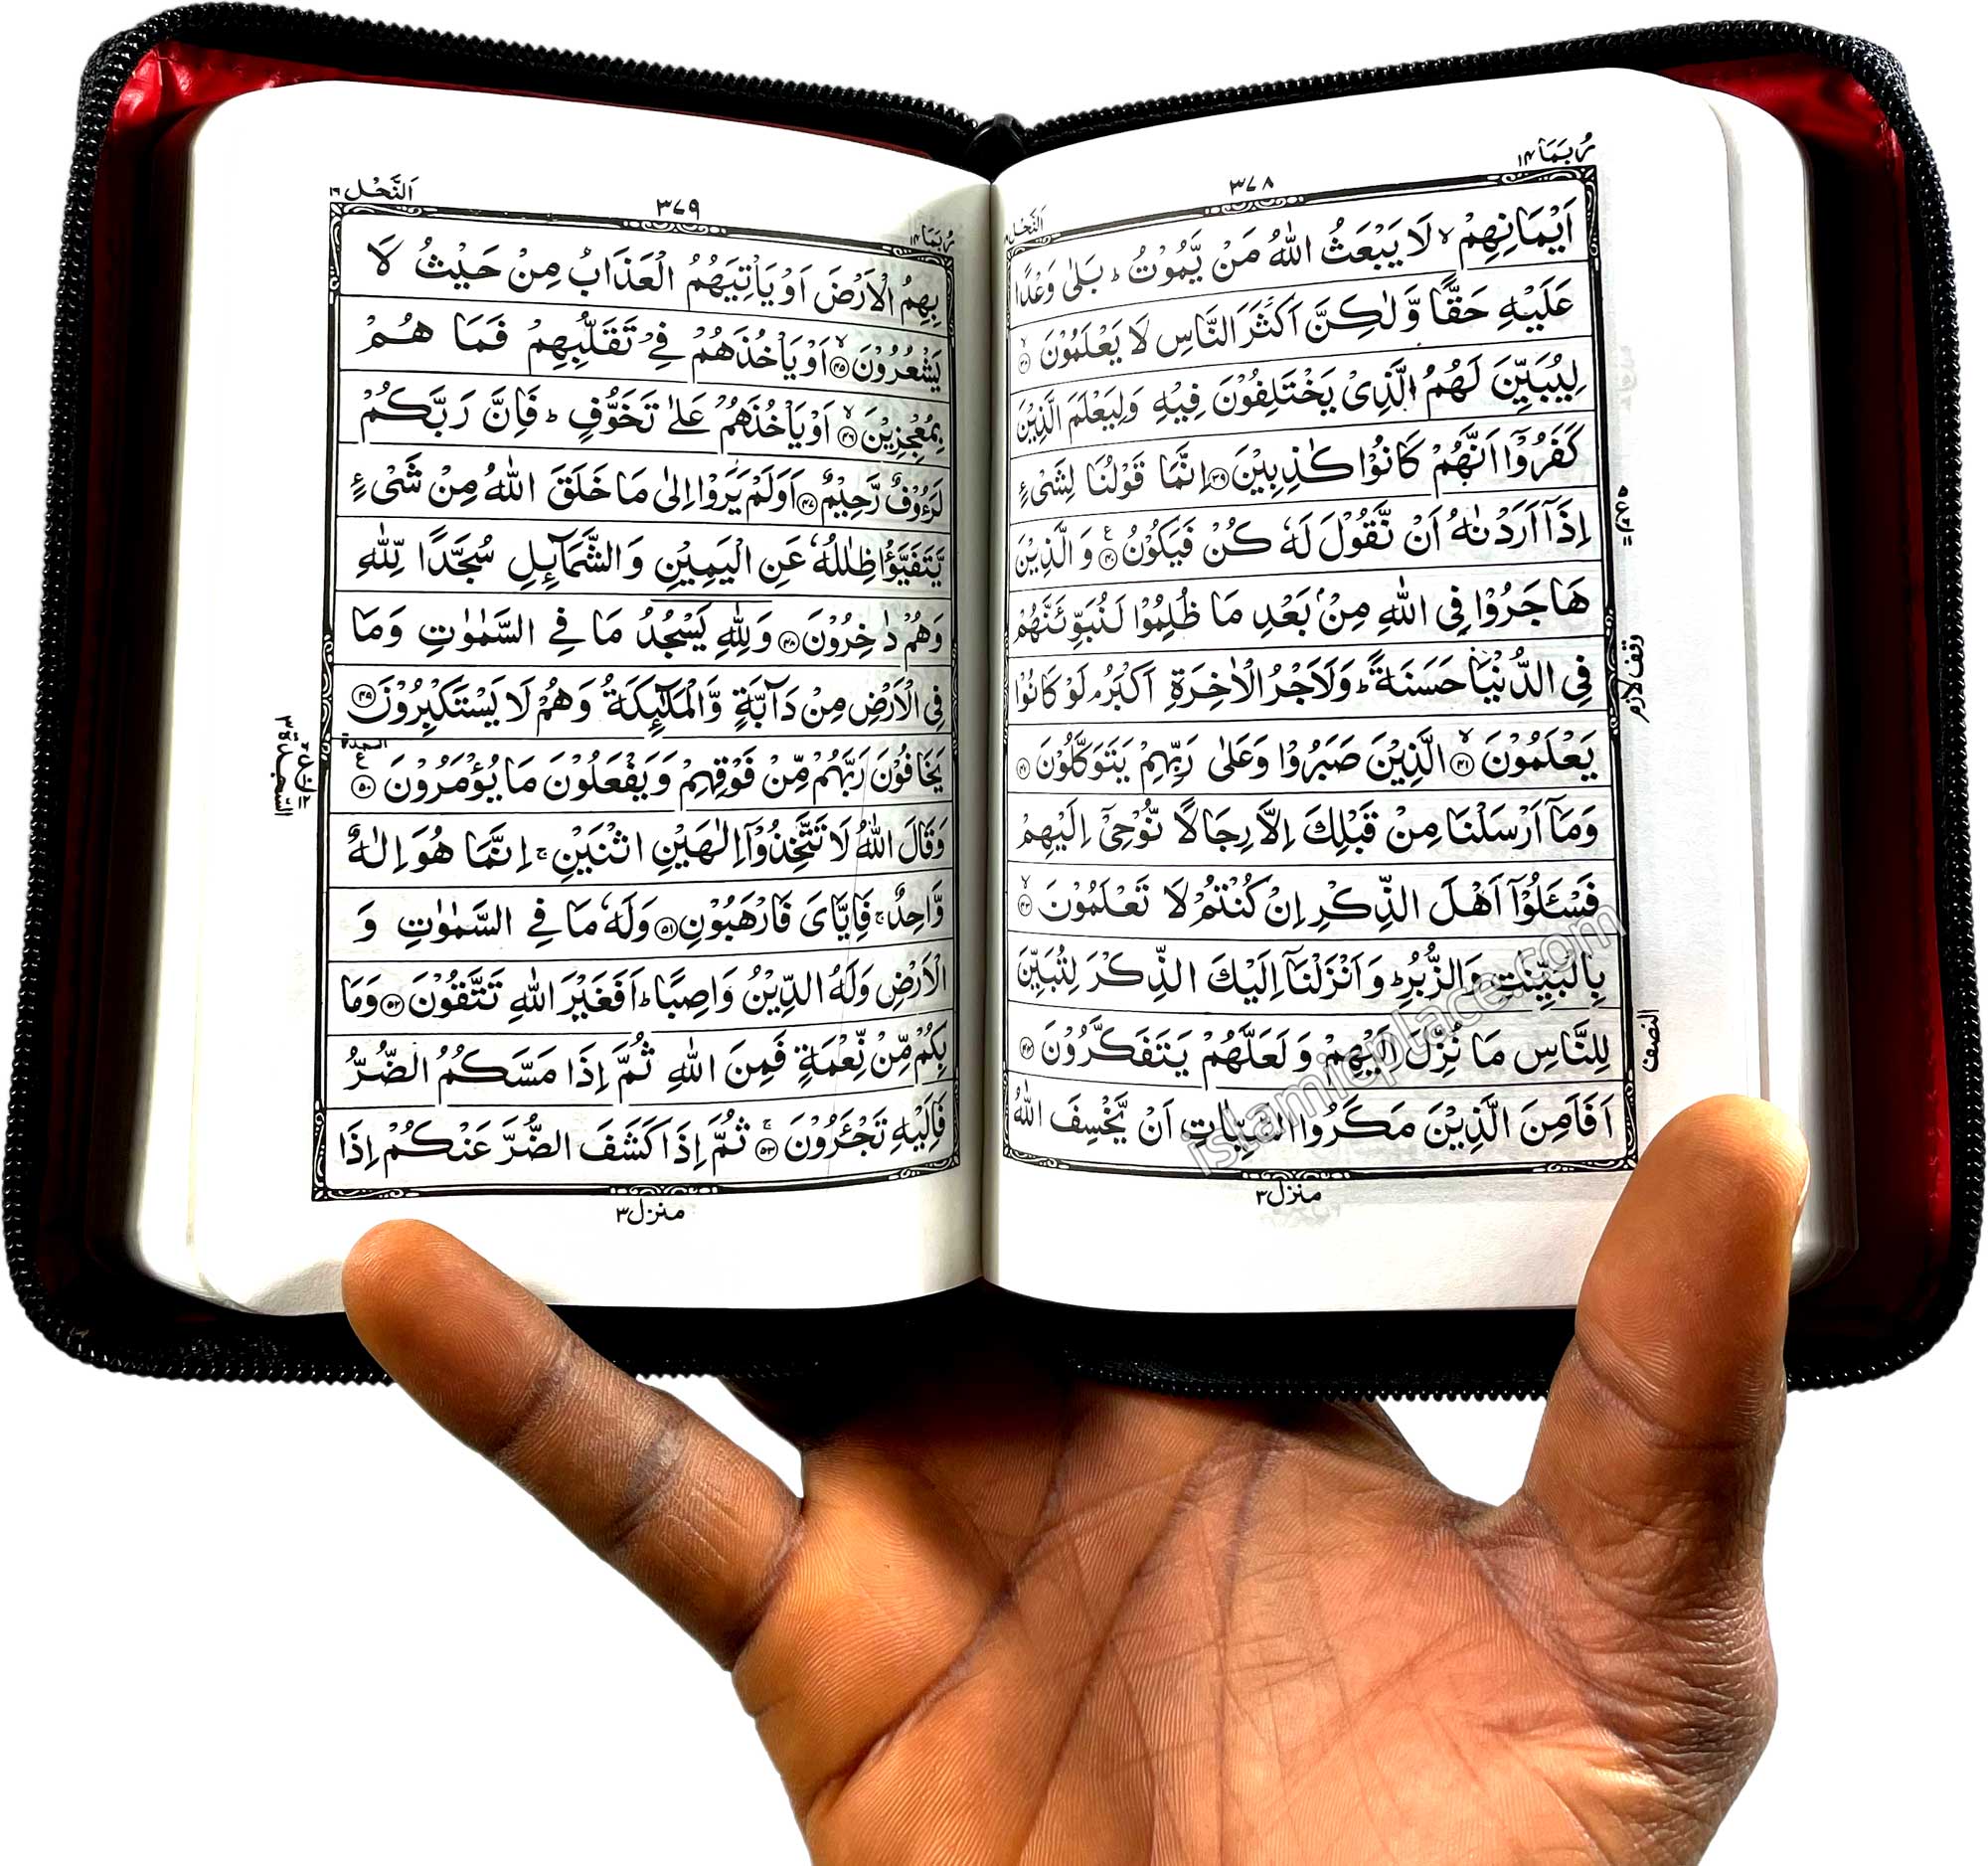 رُبَمَا ١٤
٣٧٨
النَّحْل ١٦
اَيْمَانِهِمْ ۙ لَا يَبْعَثُ اللّٰهُ مَنْ يَّمُوْتُ ؕ بَلٰى وَعْدًا
عَلَيْهِ حَقًّا وَّلٰكِنَّ اَكْثَرَ النَّاسِ لَا يَعْلَمُوْنَ ۙ﴿٣٨﴾
لِيُبَيِّنَ لَهُمُ الَّذِىْ يَخْتَلِفُوْنَ فِيْهِ وَلِيَعْلَمَ الَّذِيْنَ
كَفَرُوْۤا اَنَّهُمْ كَانُوْا كٰذِبِيْنَ ﴿٣٩﴾ اِنَّمَا قَوْلُنَا لِشَىْءٍ
اِذَاۤ اَرَدْنٰهُ اَنْ نَّقُوْلَ لَهٗ كُنْ فَيَكُوْنُ ﴿٤٠﴾ۧ وَالَّذِيْنَ
هَاجَرُوْا فِى اللّٰهِ مِنْۢ بَعْدِ مَا ظُلِمُوْا لَنُبَوِّئَنَّهُمْ
فِى الدُّنْيَا حَسَنَةً ؕ وَلَاَجْرُ الْاٰخِرَةِ اَكْبَرُ ۘ لَوْ كَانُوْا
يَعْلَمُوْنَ ۙ﴿٤١﴾ الَّذِيْنَ صَبَرُوْا وَعَلٰى رَبِّهِمْ يَتَوَكَّلُوْنَ ﴿٤٢﴾
وَمَاۤ اَرْسَلْنَا مِنْ قَبْلِكَ اِلَّا رِجَالًا نُّوْحِىْۤ اِلَيْهِمْ
فَسْـَٔلُوْۤا اَهْلَ الذِّكْرِ اِنْ كُنْتُمْ لَا تَعْلَمُوْنَ ۙ﴿٤٣﴾
بِالْبَيِّنٰتِ وَالزُّبُرِ ؕ وَاَنْزَلْنَاۤ اِلَيْكَ الذِّكْرَ لِتُبَيِّنَ
لِلنَّاسِ مَا نُزِّلَ اِلَيْهِمْ وَلَعَلَّهُمْ يَتَفَكَّرُوْنَ ﴿٤٤﴾
اَفَاَمِنَ الَّذِيْنَ مَكَرُوا السَّيِّاٰتِ اَنْ يَّخْسِفَ اللّٰهُ
وقف لازم
النصف
منزل ٣
رُبَمَا ١٤
٣٧٩
النَّحْل ١٦
بِهِمُ الْاَرْضَ اَوْ يَاْتِيَهُمُ الْعَذَابُ مِنْ حَيْثُ لَا
يَشْعُرُوْنَ ۙ﴿٤٥﴾ اَوْ يَاْخُذَهُمْ فِىْ تَقَلُّبِهِمْ فَمَا هُمْ
بِمُعْجِزِيْنَ ۙ﴿٤٦﴾ اَوْ يَاْخُذَهُمْ عَلٰى تَخَوُّفٍ ؕ فَاِنَّ رَبَّكُمْ
لَرَءُوْفٌ رَّحِيْمٌ ﴿٤٧﴾ اَوَلَمْ يَرَوْا اِلٰى مَا خَلَقَ اللّٰهُ مِنْ شَىْءٍ
يَّتَفَيَّؤُا ظِلٰلُهٗ عَنِ الْيَمِيْنِ وَالشَّمَآئِلِ سُجَّدًا لِّلّٰهِ
وَهُمْ دٰخِرُوْنَ ﴿٤٨﴾ وَلِلّٰهِ يَسْجُدُ مَا فِى السَّمٰوٰتِ وَمَا
فِى الْاَرْضِ مِنْ دَآبَّةٍ وَّالْمَلٰٓئِكَةُ وَهُمْ لَا يَسْتَكْبِرُوْنَ ﴿٤٩﴾
يَخَافُوْنَ رَبَّهُمْ مِّنْ فَوْقِهِمْ وَيَفْعَلُوْنَ مَا يُؤْمَرُوْنَ ﴿٥٠﴾ السجدة
وَقَالَ اللّٰهُ لَا تَتَّخِذُوْۤا اِلٰهَيْنِ اثْنَيْنِ ۚ اِنَّمَا هُوَ اِلٰهٌ
وَّاحِدٌ ۚ فَاِيَّاىَ فَارْهَبُوْنِ ﴿٥١﴾ وَلَهٗ مَا فِى السَّمٰوٰتِ وَ
الْاَرْضِ وَلَهُ الدِّيْنُ وَاصِبًا ؕ اَفَغَيْرَ اللّٰهِ تَتَّقُوْنَ ﴿٥٢﴾ وَمَا
بِكُمْ مِّنْ نِّعْمَةٍ فَمِنَ اللّٰهِ ثُمَّ اِذَا مَسَّكُمُ الضُّرُّ
فَاِلَيْهِ تَجْـَٔرُوْنَ ۚ﴿٥٣﴾ ثُمَّ اِذَا كَشَفَ الضُّرَّ عَنْكُمْ اِذَا
السجدة ٣
منزل ٣
islamicplace.com